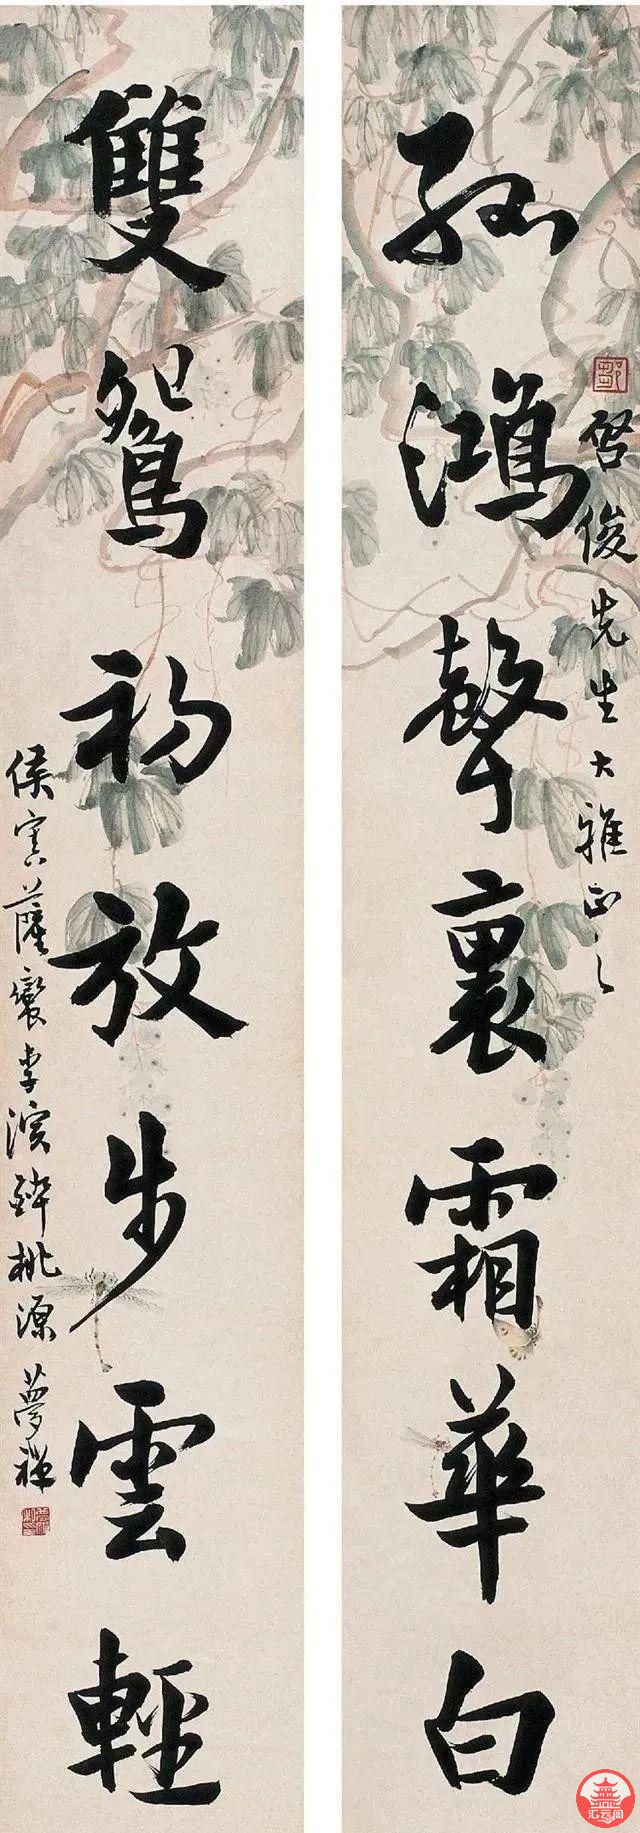 孤鴻聲裏霜華白
啓俊先生大雅正之
雙鴛初放步雲輕
侯寘薩蠻李演醉桃源 夢禪
汇云阁